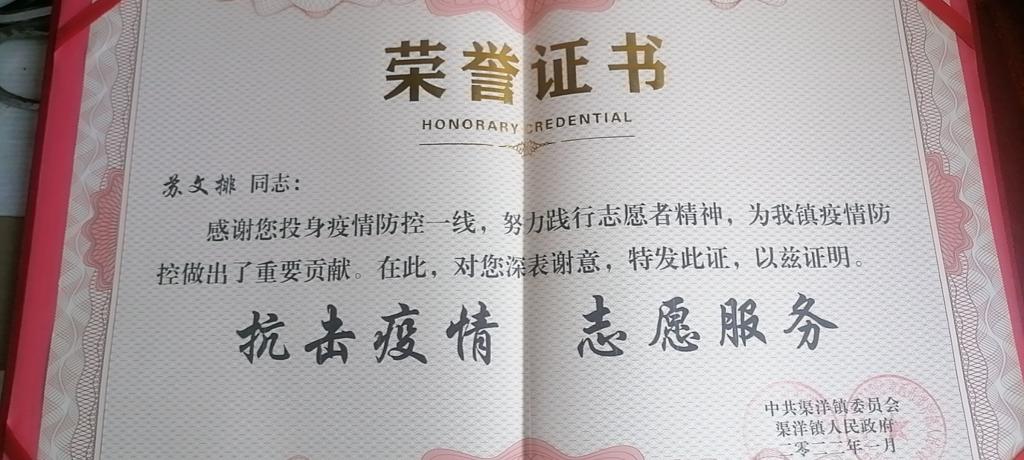 荣誉证书
HONORARY CREDENTIAL
苏文排 同志：
感谢您投身疫情防控一线，努力践行志愿者精神，为我镇疫情防
控做出了重要贡献。在此，对您深表谢意，特发此证，以兹证明。
抗击疫情 志愿服务
中共渠洋镇委员会
渠洋镇人民政府
二零二二年一月